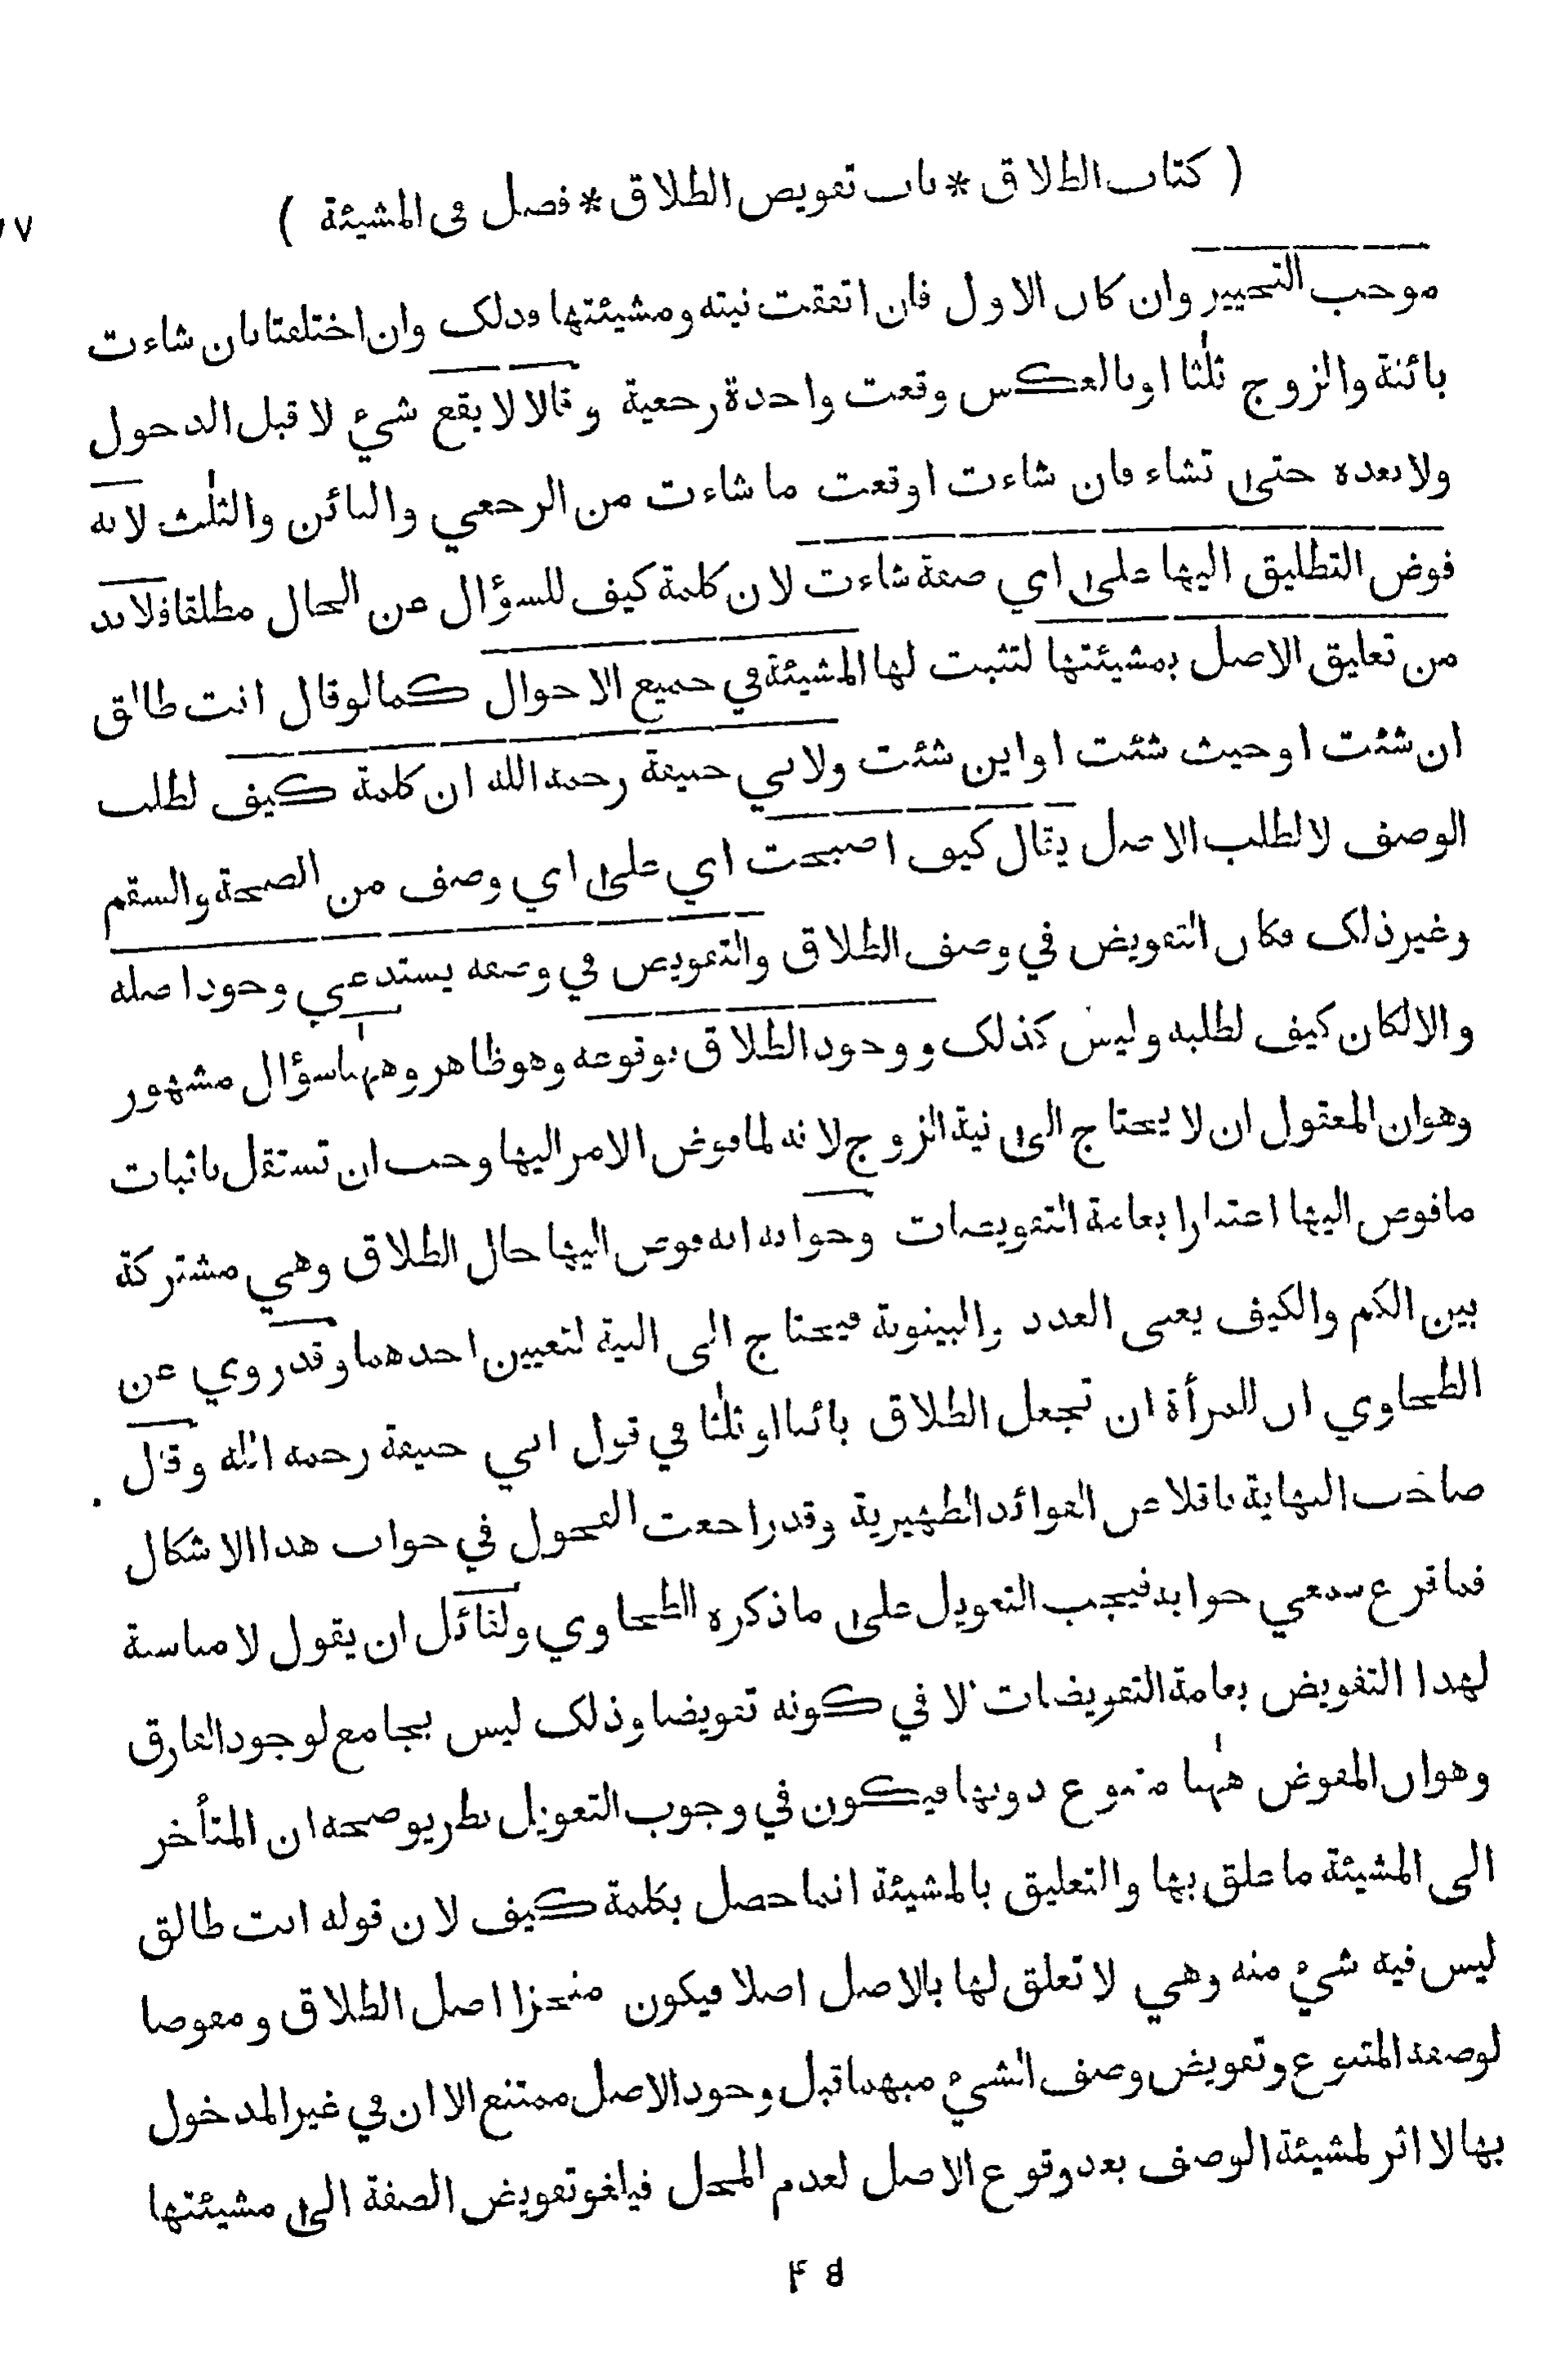 ( كتاب الطلاق * باب تفويض الطلاق * فصل في المشيئة )
موجب التخيير وان كان الاول فان اتفقت نيته ومشيئتها فذلک وان اختلفتا بان شاءت
بائنة والزوج ثلٰثا او بالعكس وقعت واحدة رجعية وقالا لا يقع شيء لا قبل الدخول
ولا بعده حتى تشاء فان شاءت اوقعت ما شاءت من الرجعي والبائن والثلٰث لانه
فوض التطليق اليها على اي صفة شاءت لان كلمة كيف للسؤال عن الحال مطلقا فلا بد
من تعليق الاصل بمشيئتها لتثبت لها المشيئة في جميع الاحوال كما لو قال انت طالق
ان شئت او حيث شئت او اين شئت ولابي حنيفة رحمه الله ان كلمة كيف لطلب
الوصف لا لطلب الاصل يقال كيف اصبحت اي على اي وصف من الصحة والسقم
وغير ذلک فكان التفويض في وصف الطلاق والتفويض في وصفه يستدعي وجود اصله
والا لكان كيف لطلبه وليس كذلک ووجود الطلاق بوقوعه وهو ظاهر وههنا سؤال مشهور
وهو ان المعقول ان لا يحتاج الى نية الزوج لانه لما فوض الامر اليها وجب ان تستقل باثبات
ما فوض اليها اعتبارا بعامة التفويضات وجوابه انه فوض اليها حال الطلاق وهي مشتركة
بين الكم والكيف يعنى العدد والبينونة فيحتاج الى النية لتعيين احدهما وقد روي عن
الطحاوي ان للمرأة ان تجعل الطلاق بائنا او ثلٰثا في قول ابي حنيفة رحمه الله وقال
صاحب النهاية ناقلا عن الفوائد الظهيرية وقد راجعت الفحول في جواب هذا الاشكال
فما قرع سمعي جوابه فيجب التعويل على ما ذكره الطحاوي ولقائل ان يقول لا مناسبة
لهذا التفويض بعامة التفويضات لا في كونه تفويضا وذلک ليس بجامع لوجود الفارق
وهو ان المفوض هٰهنا متنوع دونها فيكون في وجوب التعويل نظر يوضحه ان المتأخر
الى المشيئة ما علق بها والتعليق بالمشيئة انما حصل بكلمة كيف لان قوله انت طالق
ليس فيه شيء منه وهي لا تعلق لها بالاصل اصلا فيكون منجزا اصل الطلاق ومفوضا
لوصفه المتنوع وتفويض وصف الشيء مبهما قبل وجود الاصل ممتنع الا ان في غير المدخول
بها لا اثر لمشيئة الوصف بعد وقوع الاصل لعدم المحل فيلغو تفويض الصفة الى مشيئتها